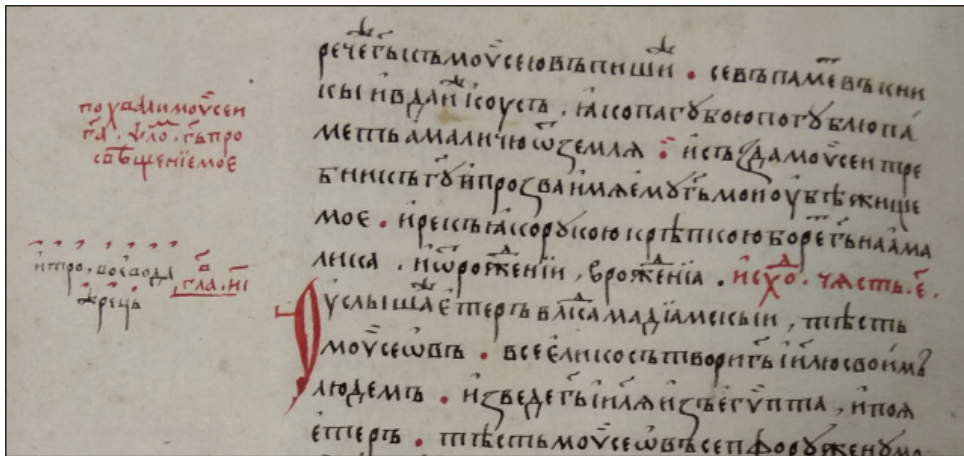 похвали моѵсеи
гл҃а . ѱло҇ . гь҇ про
свѣщенїе мое
и҆тро, воевода
жрець
гла . и҃і
речегь҇кьмоѵсеювъпиши . севъпаме҇въкни
гыи҆вдаи҆і҆соусꙋ . ꙗ҆копагꙋбоюпогꙋблюпа́
метьамаличюѿземля : и҆създамоѵсеитре
бникъгꙋ҇и҆прозваи҆мяемꙋгь҇моиоу҆бѣжище
мое . и҆рекъꙗ҆корꙋкоюкрѣпкоюборе҇гь҇наа҆ма
лика . и҆ѿроженїи , вроженїа . и҆схо҇ . часть . є҃ .
Услышаже҇е҆терьвлⷣкамадїамскыи , тьсть
моѵсеѡвъ . всее҆ликосътворигь҇і҆и҃люсвоимъ
людемъ . и҆зведегь҇і҆и҃ляи҆зъе҆гѵпта , и҆поя
е҆терь . тьстьмоѵсеѡвъсепфорꙋженꙋмо